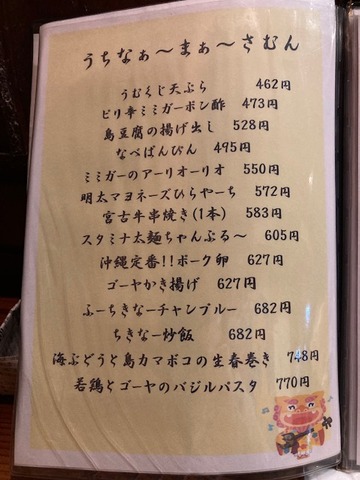 うちなぁ〜まぁ〜さむん
うむくじ天ぷら 462円
ピリ辛ミミガーポン酢 473円
島豆腐の揚げ出し 528円
なべばんびん 495円
ミミガーのアーリオーリオ 550円
明太マヨネーズひらやーち 572円
宮古牛串焼き(1本) 583円
スタミナ太麺ちゃんぷる〜 605円
沖縄定番!!ポーク卵 627円
ゴーヤかき揚げ 627円
ふーちきなーチャンプルー 682円
ちきなー炒飯 682円
海ぶどうと島カマボコの生春巻き 748円
若鶏とゴーヤのバジルパスタ 770円